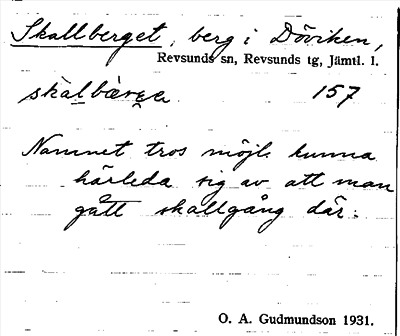 Skallberget, berg i Döviken,
Revsunds sn, Revsunds tg, Jämtl. l.
157
Namnet tros möjl. kunna
härleda sig av att man
gått skallgång där.
O. A. Gudmundson 1931.